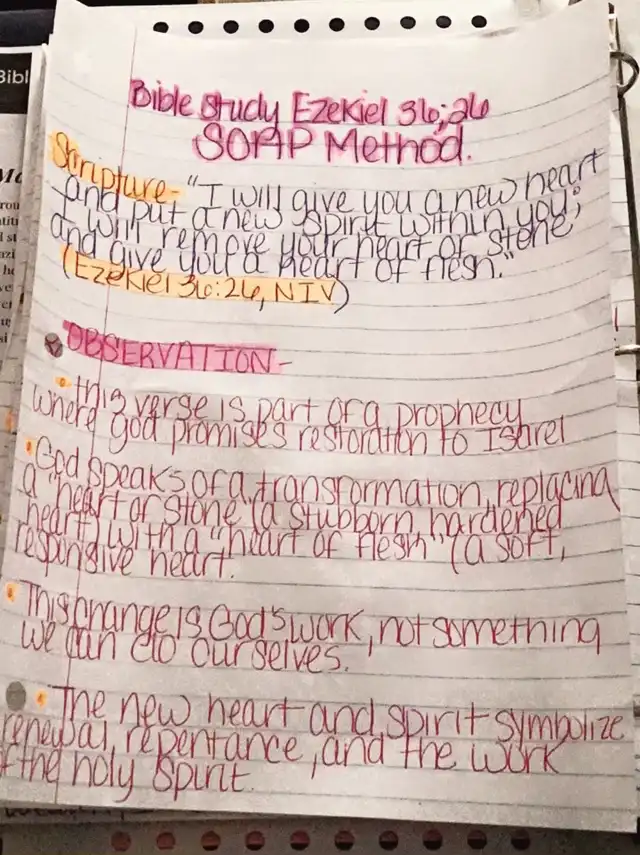 Bible Study Ezekiel 36;26
SOAP Method.
Scripture- "I will give you a new heart
and put a new spirit within you;
I will remove your heart of stone
and give you a heart of flesh."
(Ezekiel 36:26, NIV)
OBSERVATION-
• this verse is part of a prophecy
where god promises restoration to Isarel
• God speaks of a transformation, replacing
a "heart of stone (a stubborn, hardened
heart) with a "heart of flesh" (a soft,
responsive heart.
• This change is God's work, not something
we can do ourselves.
• The new heart and spirit symbolize
renewal, repentance, and the work
of the holy Spirit.
Bibl